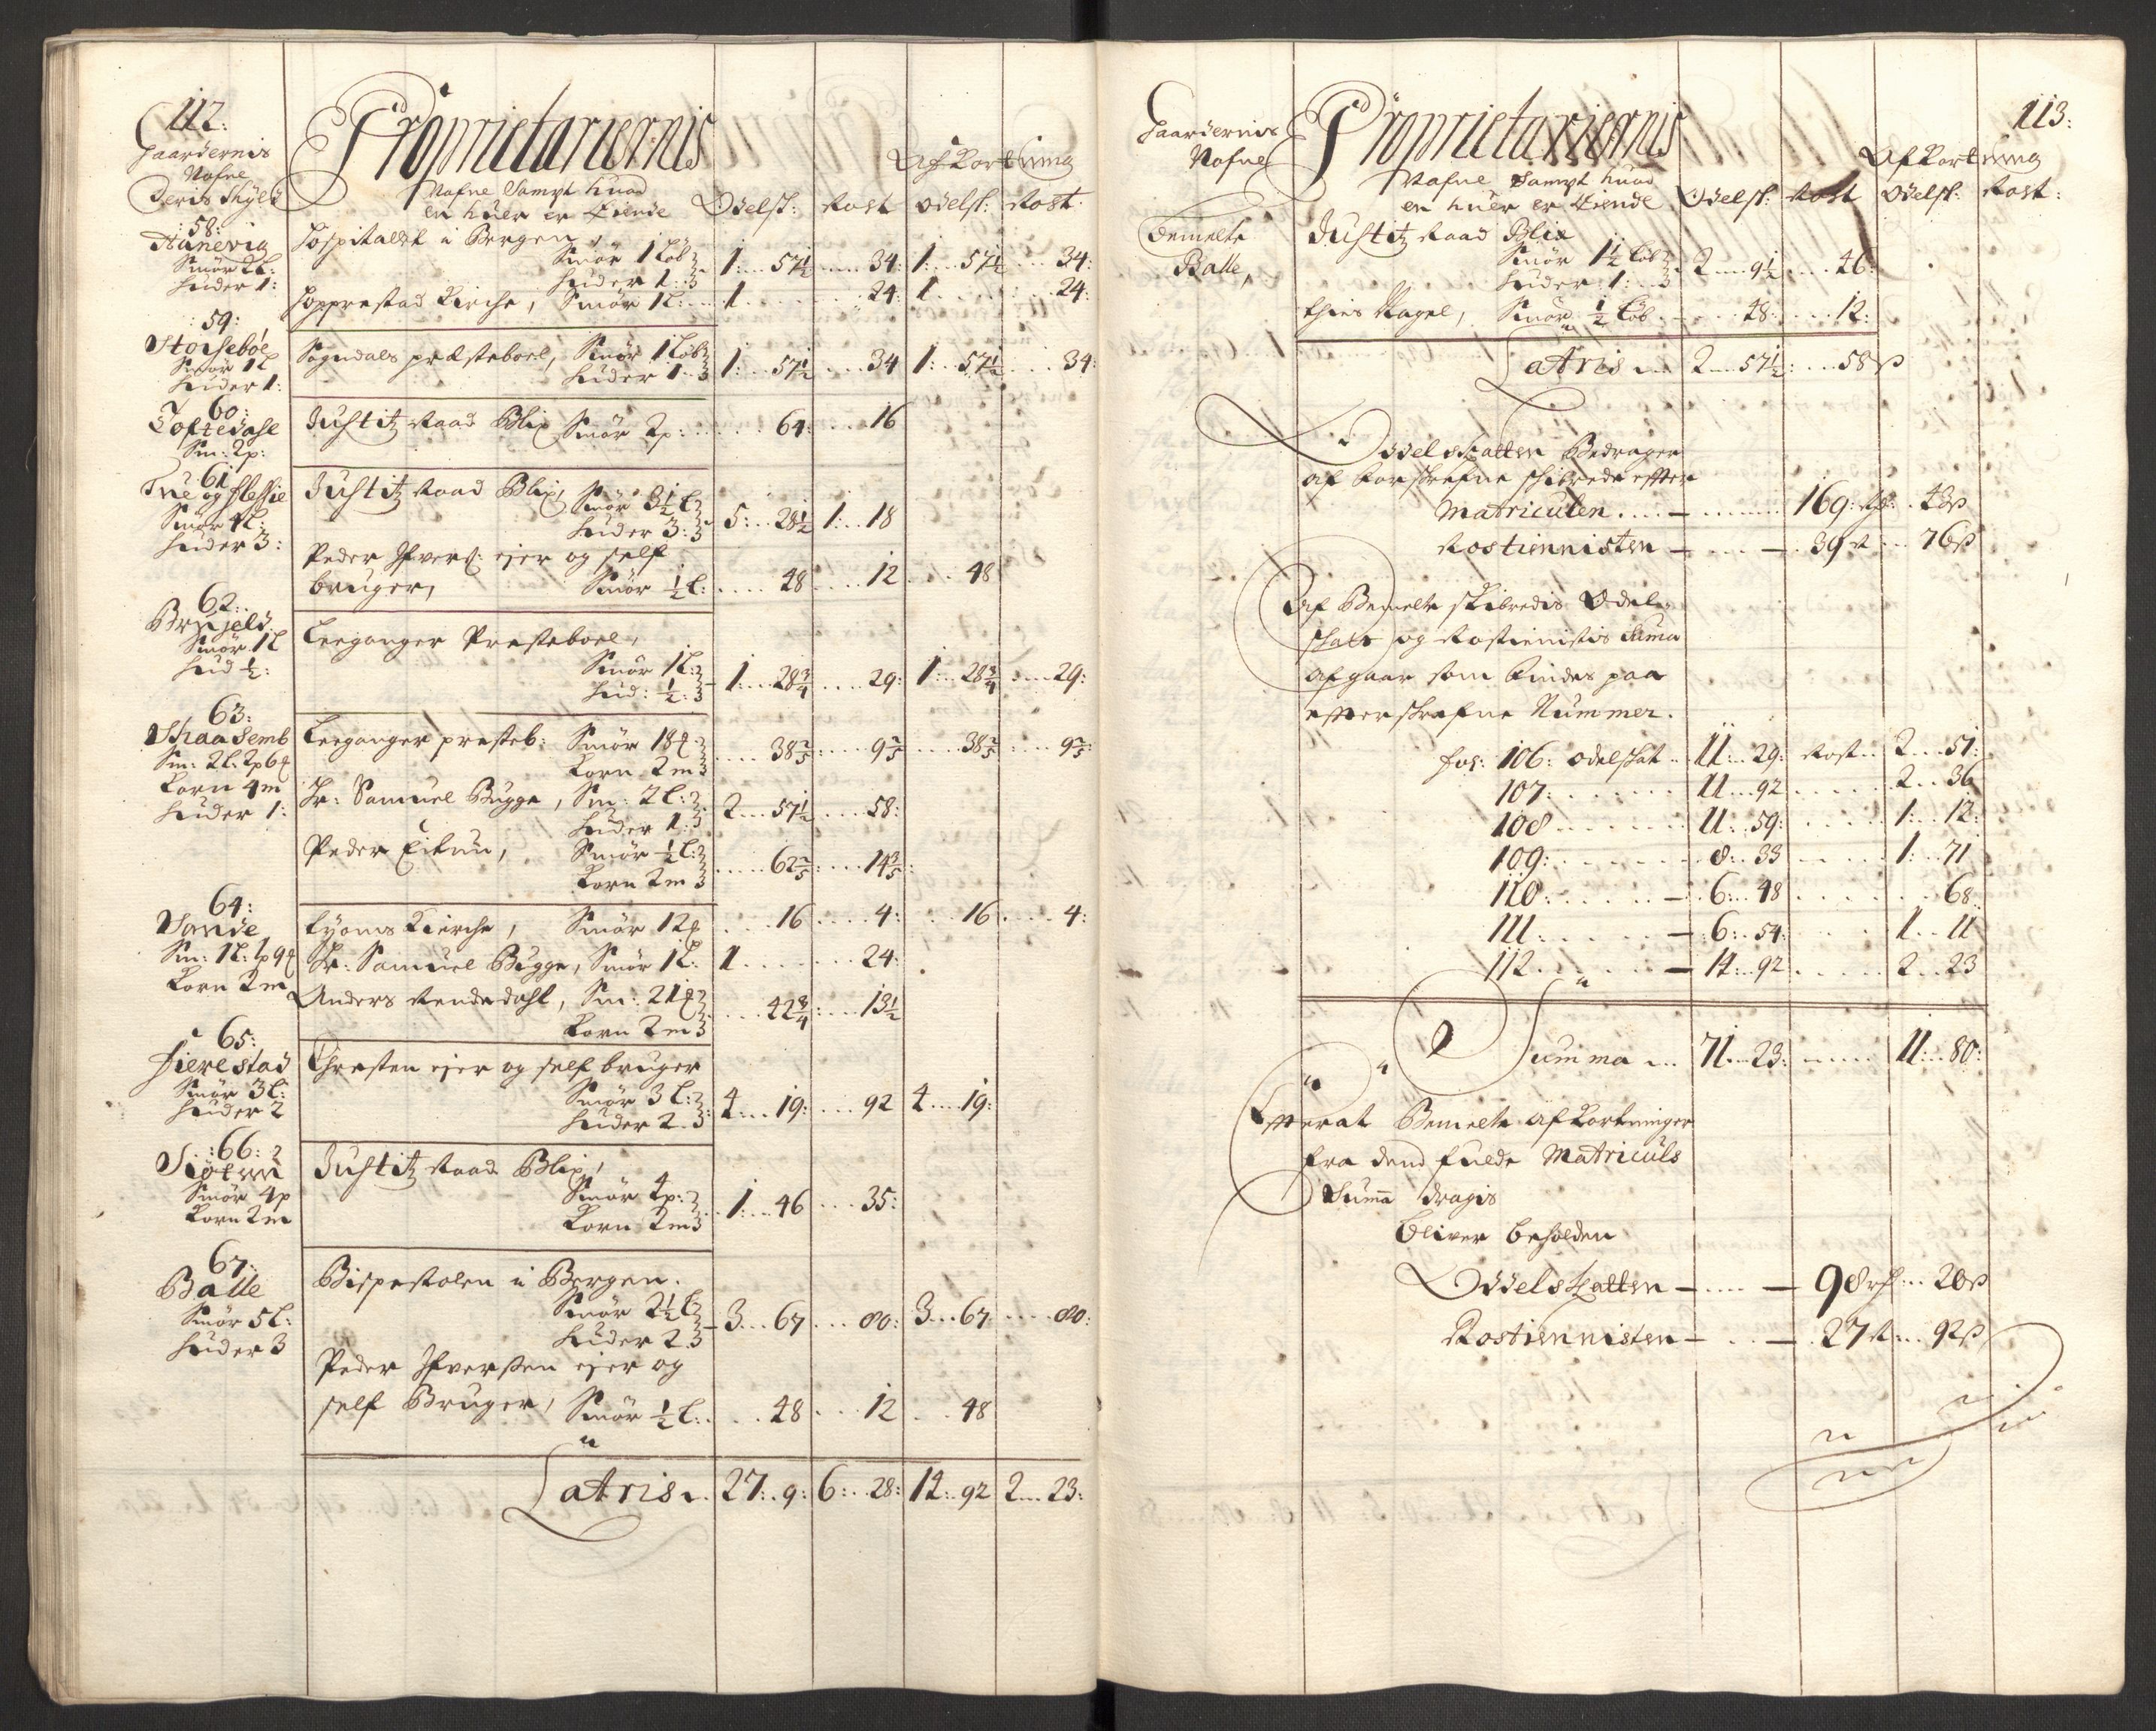 112:
Gaardernis
Nafne
Deris Skyld
Proprietariernis
Nafne Sampt huad
en huer er Eiende
Odelsk: Rost
Afkortning
Odelsk: Rost:
:58:
Hanevig
Smør 2l:
Huder 1:
Hospitallet i Bergen,
Smør 1 løb
Huder 1: 1: 57½ 34: 1: 57½ 34:
Hopprestad Kirche, Smør 1l: 1 24: 1 24:
:59:
Stoisebøe
Smør 1l
Huder 1:
Sogndals præsteboel, Smør 1 løb
Huder 1 1: 57½ 34 1: 57½ 34:
60:
Toftedahl
Sm: 2p:
Justitz Raad Blix Smør 2p: 64: 16
61
Tue og Flessie
Smør 4l:
Huder 3:
Justitz Raad Blix, Smør 3½ l
Huder 3: 5: 28½ 1: 18
Peder Ifvers: ejer og self
bruger, Smør ½ l: 48 12 48
62:
Brxjeld
Smør 1l
Hud ½:
Leeganger Presteboel,
Smør 1l:
Hud: ½: 1: 28¾ 29: 1: 28¾ 29:
63:
Skaasemb
Sm: 2l: 2p 6
Korn 4m
Huder 1:
Leeganger presteb: Smør 18
Korn 2m 38⅖ 9⅗ 38⅖ 9⅗:
Hr: Samuel Bugge, Sm: 2l:
Huder 1: 2 57½ 58:
Peder Eitun, Smør ½ l:
Korn 2m 62⅖: 14⅗:
64:
Sande
Sm: 1l: 1p 9
Korn 2m
Tyoms Kierche, Smør 12 16 4: 16 4:
Hr: Samuel Bugge, Smør 1l: 1 24:
Anders Rendedahl, Sm: 21
Korn 2m 42¾: 13½
65:
Fierestad
Smør 3l:
Huder 2
Chresten ejer og self bruger
Smør 3l:
Huder 2. 4: 19: 92 4 19:
:66:
Siøtun
Smør 4p
Korn 2m
Justitz Raad Blix,
Smør 4p:
Korn 2m 1: 46 35:
67:
Balle
Smør 5l:
Huder 3
Bispestolen i Bergen.
Smør 2½ l
Huder 2 3 67 80: 3 67 80:
Peder Ifversen ejer og
self Bruger, Smør ½ l: 48 12 48
Latris 27: 9: 6: 28: 14: 92 2 23:
113:
Gaardernis
Nafne
Proprietariernis
Nafne Sampt huad
en huer er Eiende
Odelsk: Rost
Afkortning
Odelsk: Rost:
Bemelte
Balle,
Justitz Raad Blix
Smør 1½ løb
Huder 1: 2 9½ 46:
Thies Nagel, Smør ½ løb 48: 12:
Latris 2 57½: 58ß
Odelskatten Bedrager
af forskrefne skibrede efter
Matriculen 169: rdr: 43ß
Rostiennisten 39 r 76ß
Af Bemelte skibredis Odel
skatt og Rostienistis Suma
afgaar som findes paa
efterskrefne Nummer.
fol: 106: Odelskat 11: 29: Rost 2 51:
107: 11 92 2 36
108 11: 59: 1: 12:
109: 8: 33 1: 71
110: 6: 48 68
111: 6: 54: 1 11
112 14: 92 2 23
Summa 71 23: 11: 80:
Efterat Bemelte afkortninger
fra dend fulde Matriculs
Suma dragis
bliver beholden
Odelskatten 98 rd 20ß
Rostiennisten 27 r 92ß